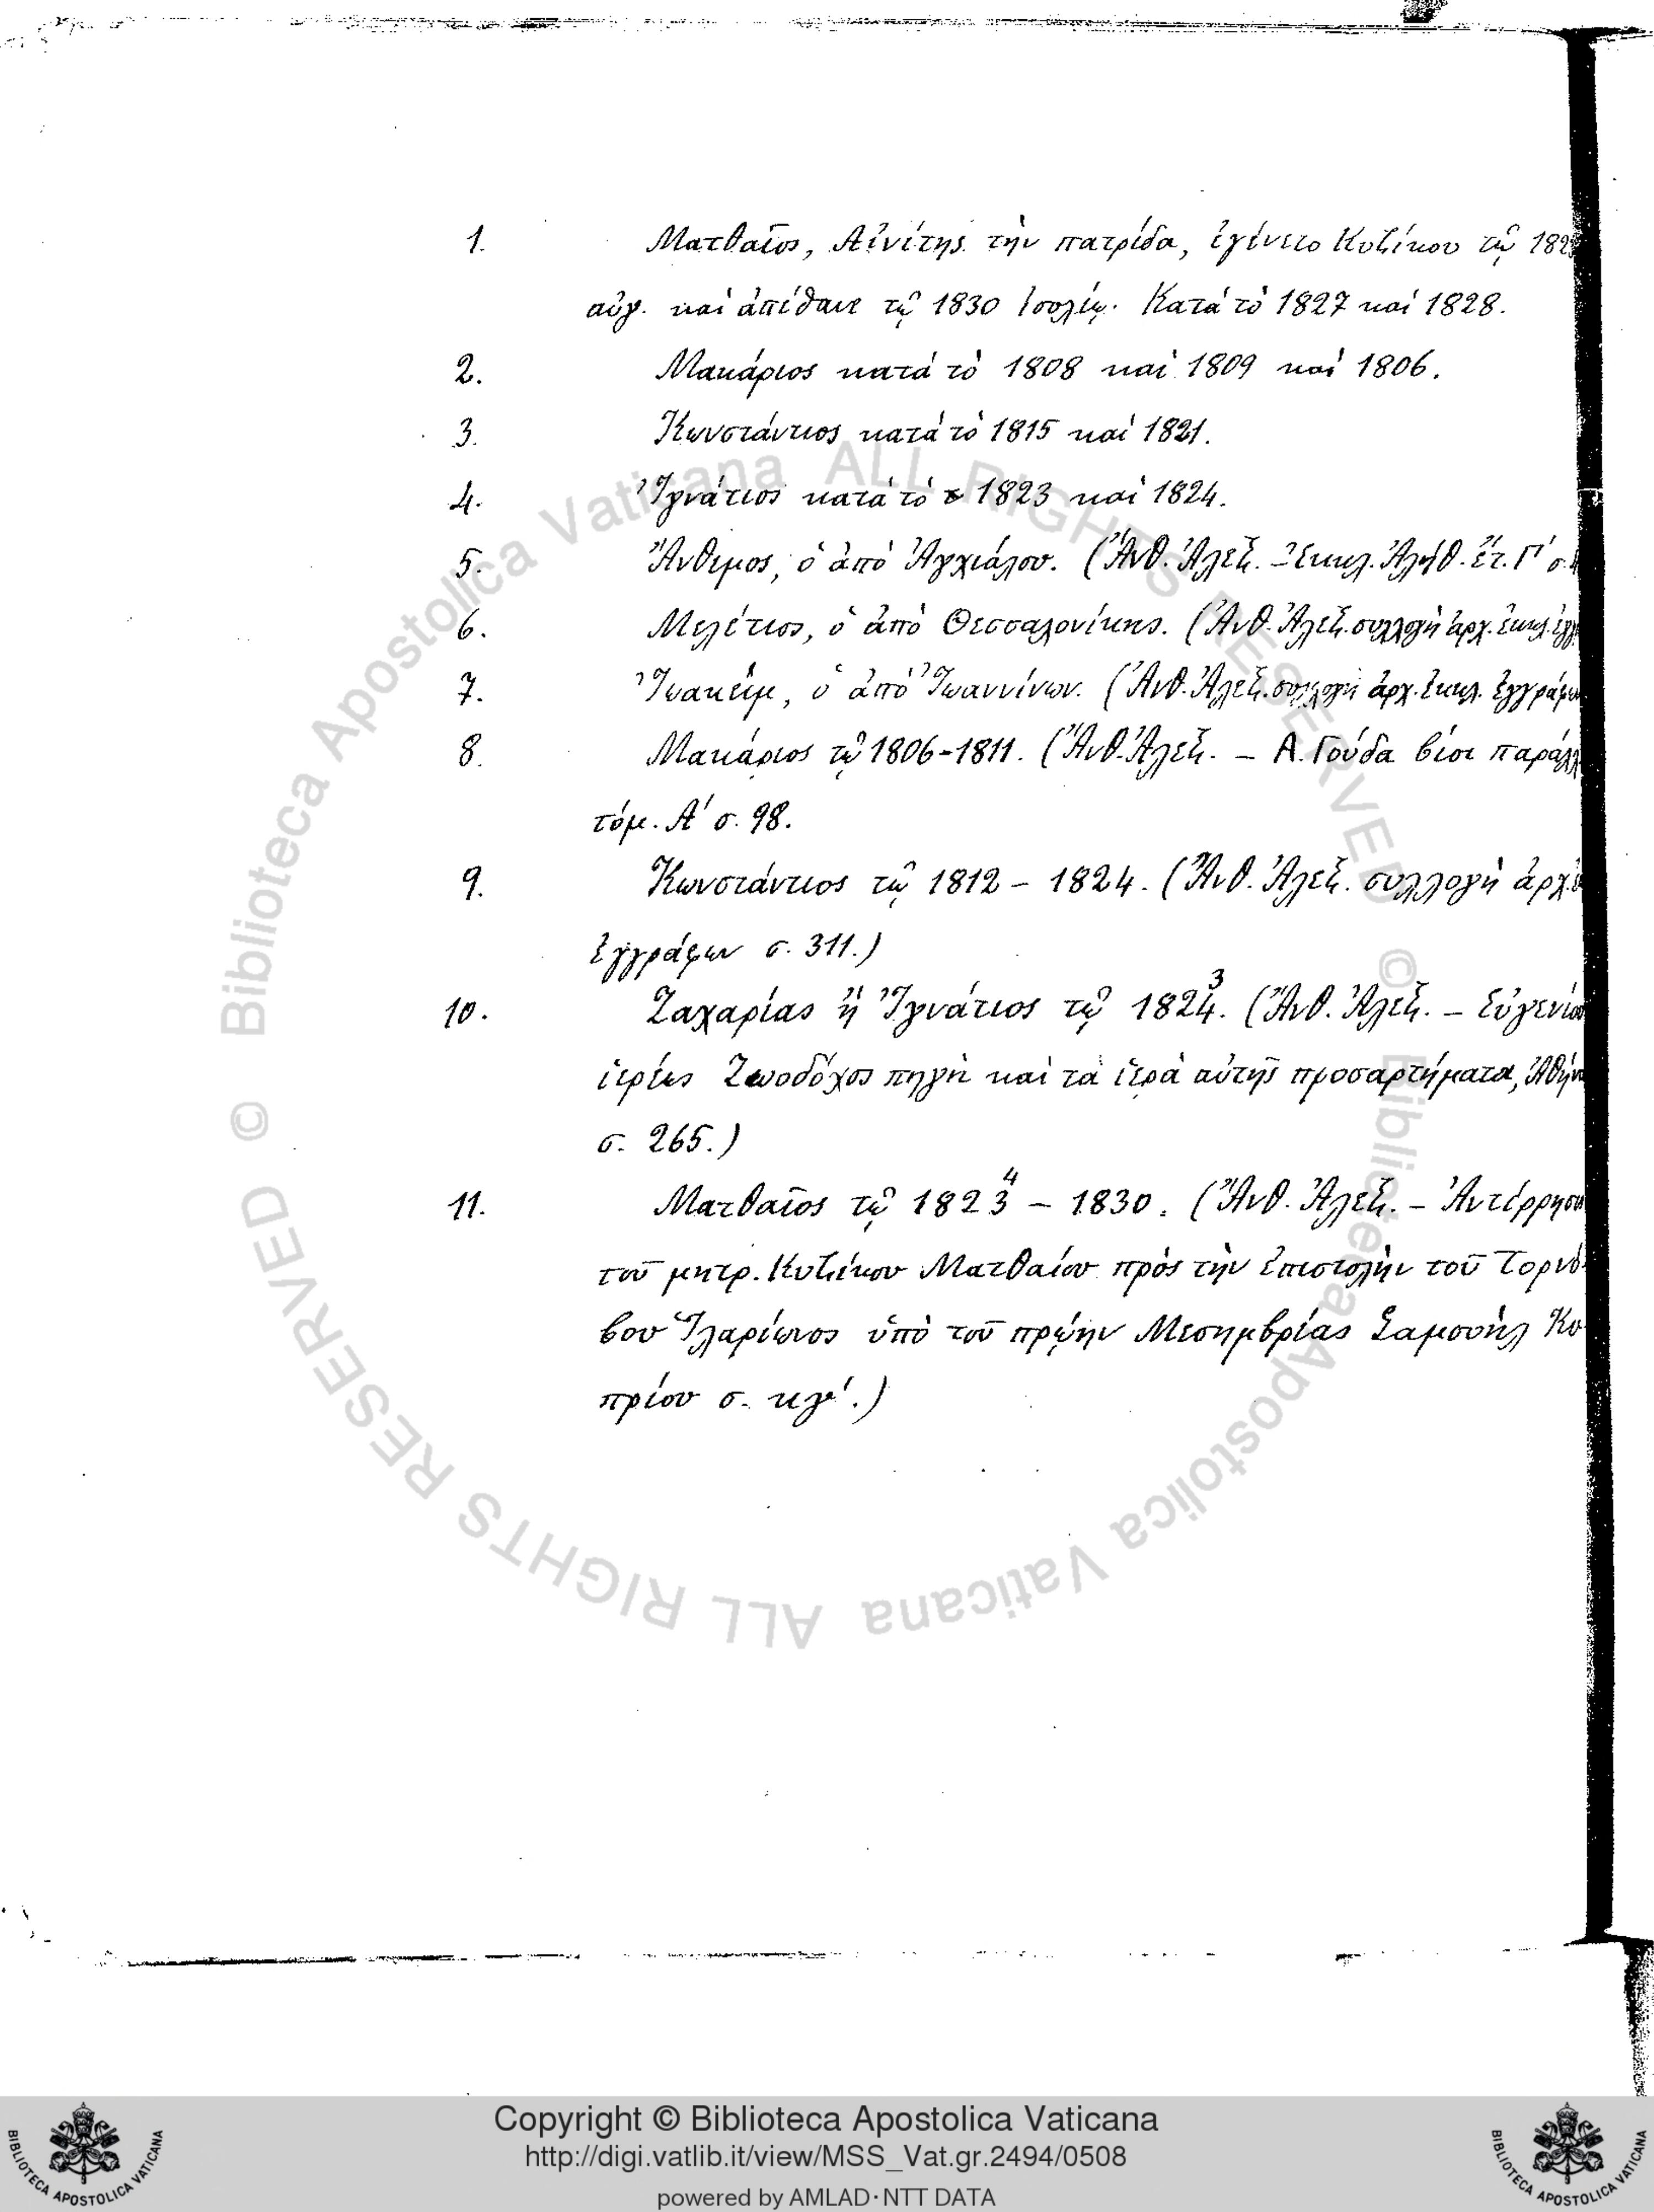 1. Ματθαῖος, Αἰνίτης τὴν πατρίδα, ἐγίνετο Κυζίκου τῷ 182
αὐγ. καὶ ἀπέθανε τῷ 1830 Ἰουλίῳ. Κατὰ τὸ 1827 καὶ 1828.
2. Μακάριος κατὰ τὸ 1808 καὶ 1809 καὶ 1806.
3. Κωνστάντιος κατὰ τὸ 1815 καὶ 1821.
4. Ἰγνάτιος κατὰ τὸ 1823 καὶ 1824.
5. Ἄνθιμος, ὁ ἀπὸ Ἀγχιάλου. (Ἄνθ. Ἀλεξ. – Ἐκκλ. Ἀλήθ. ἔτ. Γ' σ.
6. Μελέτιος, ὁ ἀπὸ Θεσσαλονίκης. (Ἄνθ. Ἀλεξ. συλλογὴ ἀρχ. ἐκκλ. ἐγγ
7. Ἰωακεὶμ, ὁ ἀπὸ Ἰωαννίνων. (Ἄνθ. Ἀλεξ. συλλογὴ ἀρχ. ἐκκλ. ἐγγράφω
8. Μακάριος τῷ 1806-1811. (Ἄνθ. Ἀλεξ. – Α. Γούδα βίοι παράλλ
τόμ. Α' σ. 98.
9. Κωνστάντιος τῷ 1812 – 1824. (Ἄνθ. Ἀλεξ. συλλογὴ ἀρχ.
ἐγγράφων σ. 311.)
3
10. Ζαχαρίας ἢ Ἰγνάτιος τῷ 1824. (Ἄνθ. Ἀλεξ. – Εὐγενίου
ἱερέως Ζωοδόχος πηγὴ καὶ τὰ ἱερὰ αὐτῆς προσαρτήματα, Ἀθήν
σ. 265.)
4
11. Ματθαῖος τῷ 1823 – 1830. (Ἄνθ. Ἀλεξ. – Ἀντίρρησις
τοῦ μητρ. Κυζίκου Ματθαίου πρὸς τὴν ἐπιστολὴν τοῦ Τορνό-
βου Ἱλαρίωνος ὑπὸ τοῦ πρῴην Μεσημβρίας Σαμουὴλ Κυ
πρίου σ. κγ'.)
© Biblioteca Apostolica Vaticana ALL RIGHTS RESERVED
© Biblioteca Apostolica Vaticana ALL RIGHTS RESERVED
Copyright © Biblioteca Apostolica Vaticana
http://digi.vatlib.it/view/MSS_Vat.gr.2494/0508
powered by AMLAD·NTT DATA
BIBLIOTECA APOSTOLICA VATICANA
BIBLIOTECA APOSTOLICA VATICANA